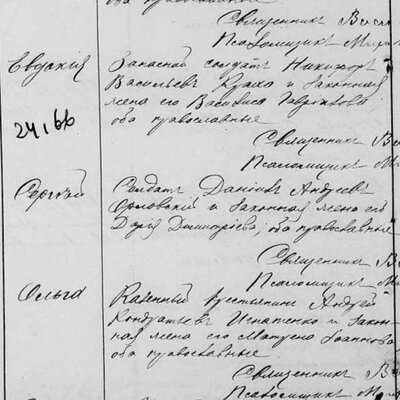 оба православные
Священник
Псаломщик
Евдокія
Запасной солдат Никифор
Васильев и законная
жена его Васса Гаврилова
оба православные
24166
Священник
Псаломщик
Сергѣй
Солдат Даніил Андреев
Орловскій и законная жена его
Дарія Димитріева, оба православные
Священник
Псаломщик
Ольга
Казенный крестьянин Андрей
Кондратьев Игнатенко и закон-
ная жена его Матрена Іоаннова
оба православные
Священник
Псаломщик